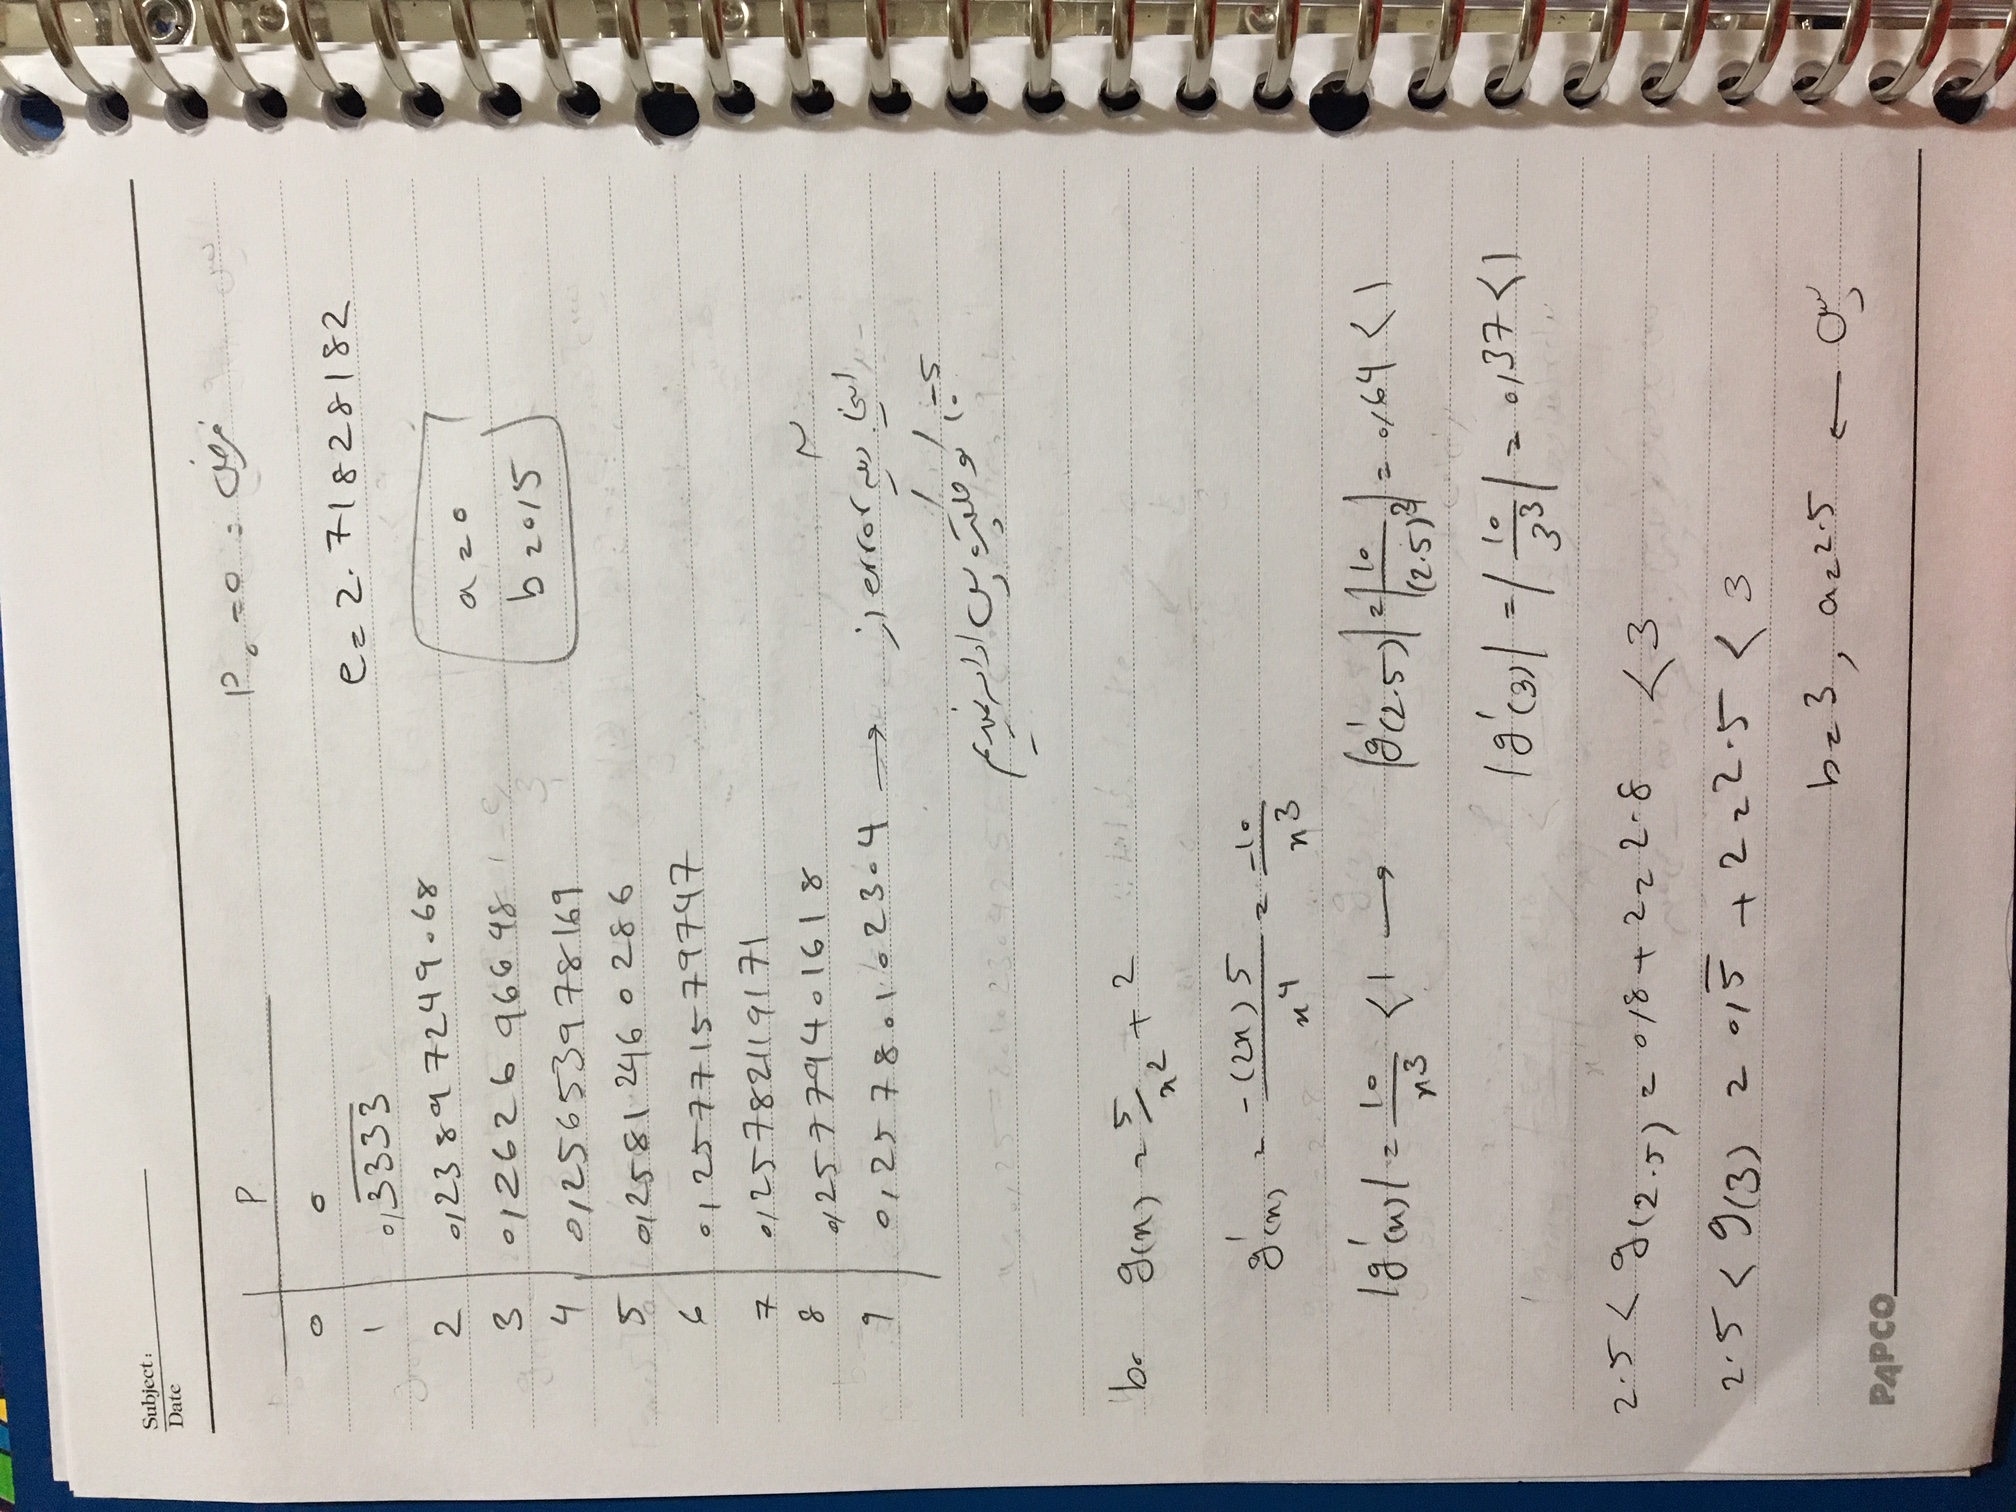 Subject:
Date
P
P₀ = 0 : فرض
0 0
1 0,3333
e = 2.71828182
2 0,23897249068
a = 0
3 0,262696648
b = 0,5
4 0,25653978169
5 0,25812460286
6 0,25771579747
7 0,25782119171
8 0,25779401618
9 0,25780102304 → اینجا دیگه error از
10⁻⁵ کوچکتره پس ادامه نمیدیم
b. g(x) = 5/x² + 2
g'(x) = -(2x)5/x⁴ = -10/x³
|g'(x)| = 10/x³ < 1 → |g'(2.5)| = |10/(2.5)³| = 0,64 < 1
|g'(3)| = |10/3³| = 0,37 < 1
2.5 < g(2.5) = 0,8 + 2 = 2.8 < 3
2.5 < g(3) = 0,5̅ + 2 = 2.5 < 3
b = 3 , a = 2.5 ← پس
PAPCO